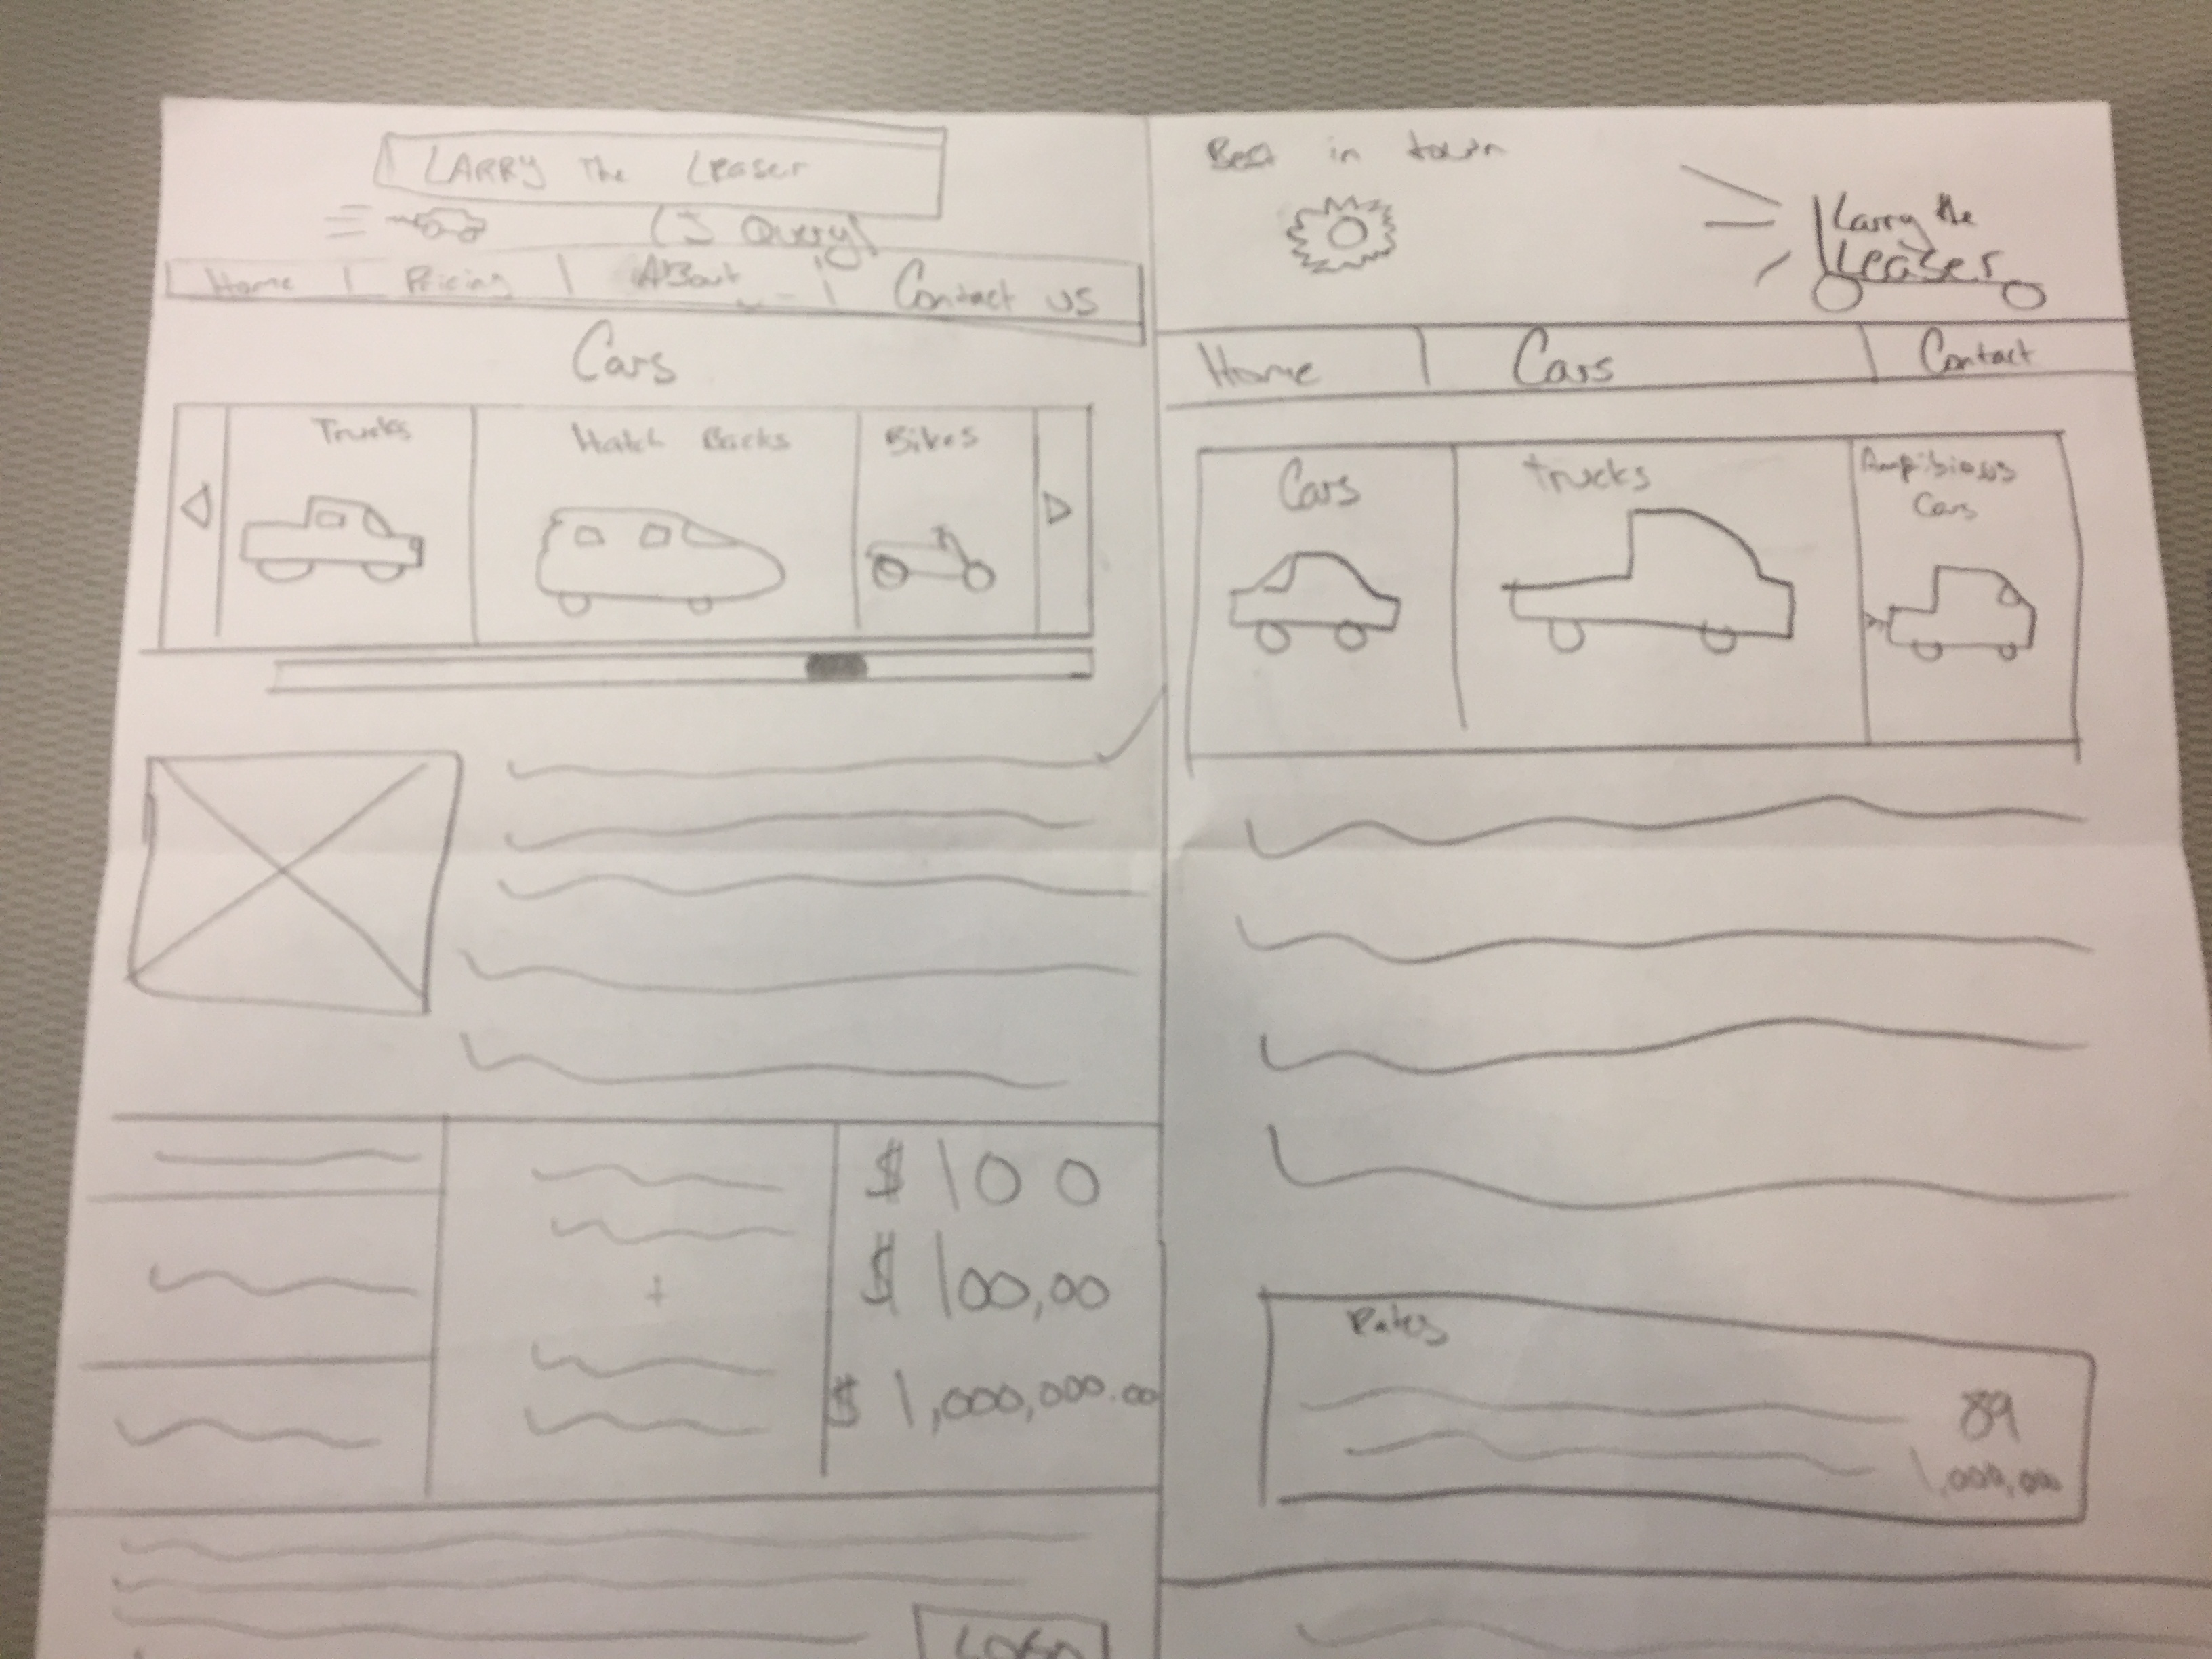 LARRY The Leaser
(J Query)
Home | Pricing | About | Contact us
Cars
Trucks
Hatch Backs
Bikes
$ 100
$ 100,00
$ 1,000,000.00
LOGO
Best in town
Larry the
Leaser
Home | Cars | Contact
Cars
trucks
Ampibious
Cars
Rates
89
1,000,000